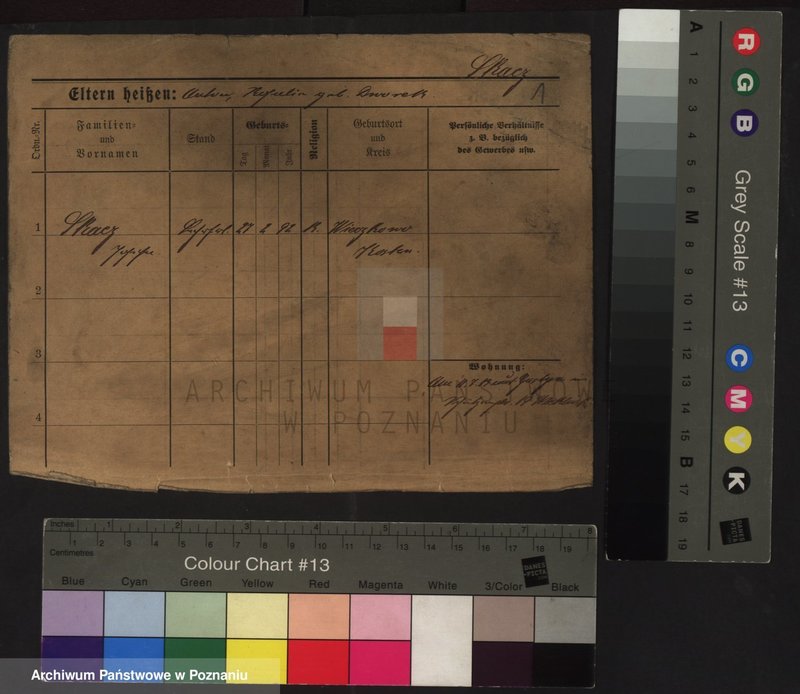 Skacz
Eltern heißen: geb. Dworek.
1
Ordn.-Nr.
Familien-
und
Vornamen
Stand
Geburts-
Tag
Monat
Jahr
Religion
Geburtsort
und
Kreis
Persönliche Verhältnisse
z. B. bezüglich
des Gewerbes usw.
1
Skacz
27 2 92 K. Kosten.
2
3
Wohnung:
4
ARCHIWUM PAŃSTWOWE
W POZNANIU
Inches 1 2 3 4 5 6 7 8
Centimetres 1 2 3 4 5 6 7 8 9 10 11 12 13 14 15 16 17 18 19
Colour Chart #13
DANES
PICTA
Blue Cyan Green Yellow Red Magenta White 3/Color Black
Grey Scale #13
A 1 2 3 4 5 6 M 8 9 10 11 12 13 14 15 B 17 18 19
R G B
C M Y K
DANES
PICTA
Archiwum Państwowe w Poznaniu